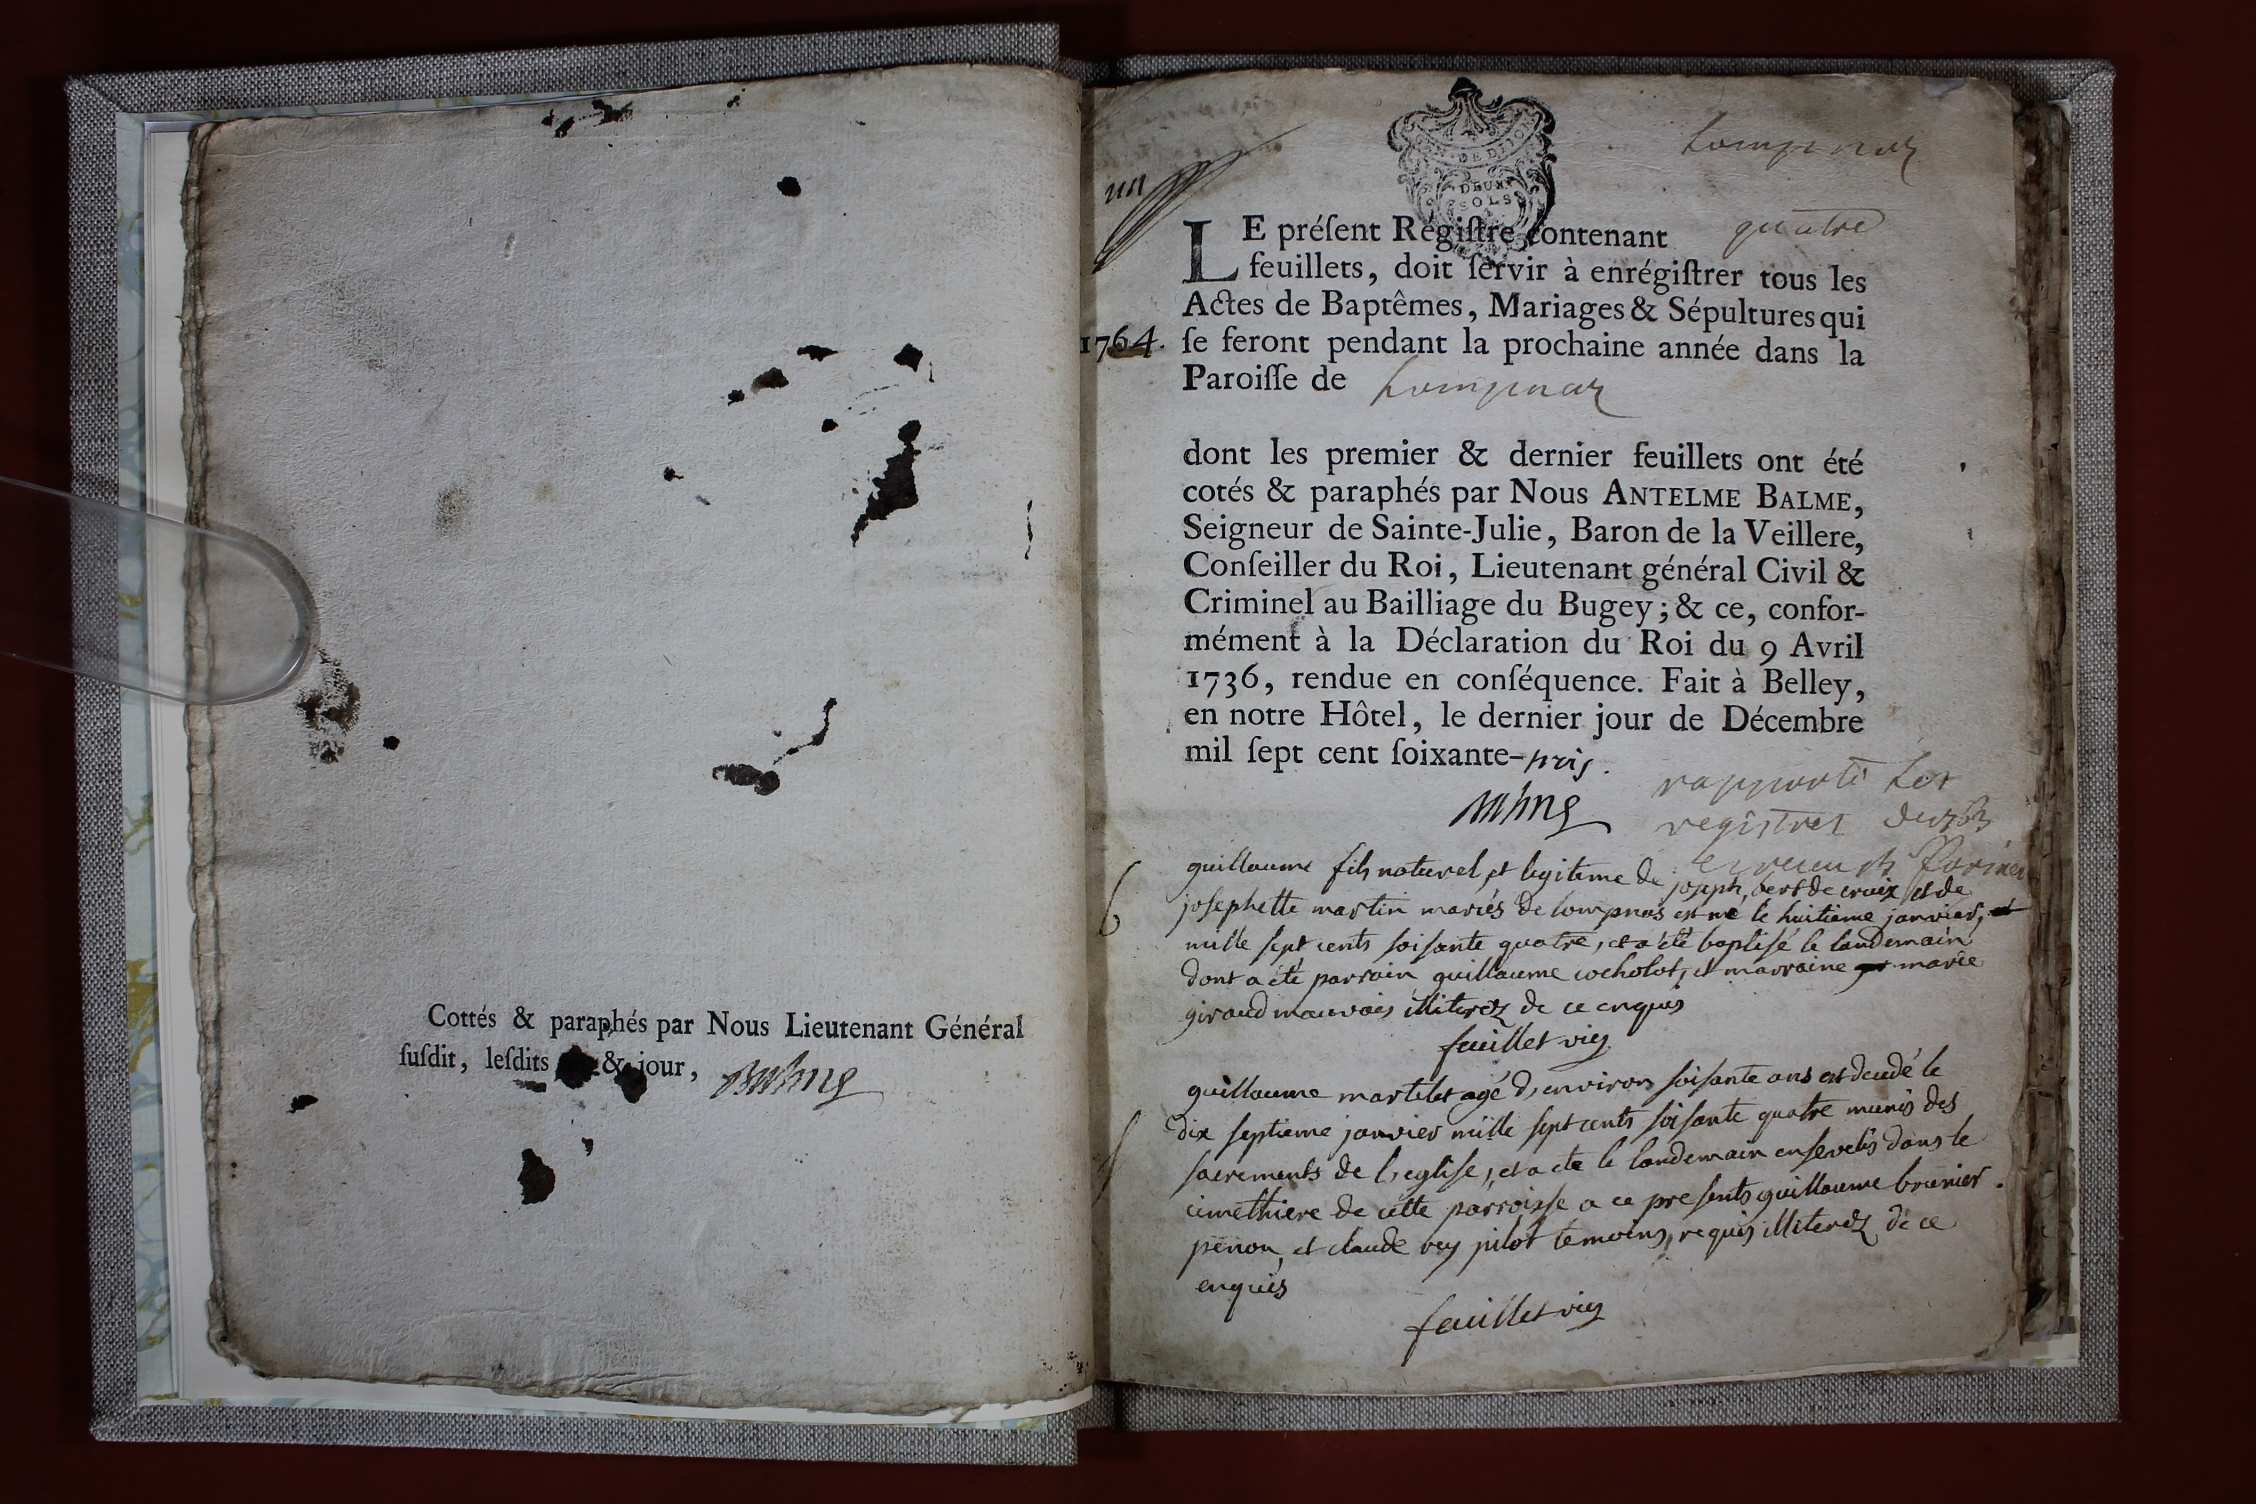 Cottés & paraphés par Nous Lieutenant Général
ſuſdit, leſdits & jour,
Balme
un
GEN. DE DIJON
DEUX
SOLS
Lompnas
LE préſent Régiſtre contenant quatre
feuillets, doit ſervir à enrégiſtrer tous les
Actes de Baptêmes, Mariages & Sépultures qui
1764. ſe feront pendant la prochaine année dans la
Paroiſſe de Lompnas
dont les premier & dernier feuillets ont été
cotés & paraphés par Nous ANTELME BALME,
Seigneur de Sainte-Julie, Baron de la Veillere,
Conſeiller du Roi, Lieutenant général Civil &
Criminel au Bailliage du Bugey; & ce, confor-
mément à la Déclaration du Roi du 9 Avril
1736, rendue en conſéquence. Fait à Belley,
en notre Hôtel, le dernier jour de Décembre
mil ſept cent ſoixante-trois.
Balme
rapporté Les
registres de 1763
B
guillaume fils naturel et legitime de joseph bert de croix et de
josephette martin mariés de lompnas est né le huitieme janvier,
mille sept cents soisante quatre, et a été baptisé le landemain
dont a été parrain guillaume cocholot, et marraine marie
giraud mauvais illiterez de ce enquis
feuillet vic
S
guillaume martelet agé d'environ soisante ans est decedé le
dix septieme janvier mille sept cents soisante quatre munis des
sacrements de l'eglise, et a eté le landemain ensevelis dans le
cimethiere de cette parroisse a ce presents guillaume brunier
penon, et claude rey pilot témoins, requis illiterez de ce
enquis
feuillet vic